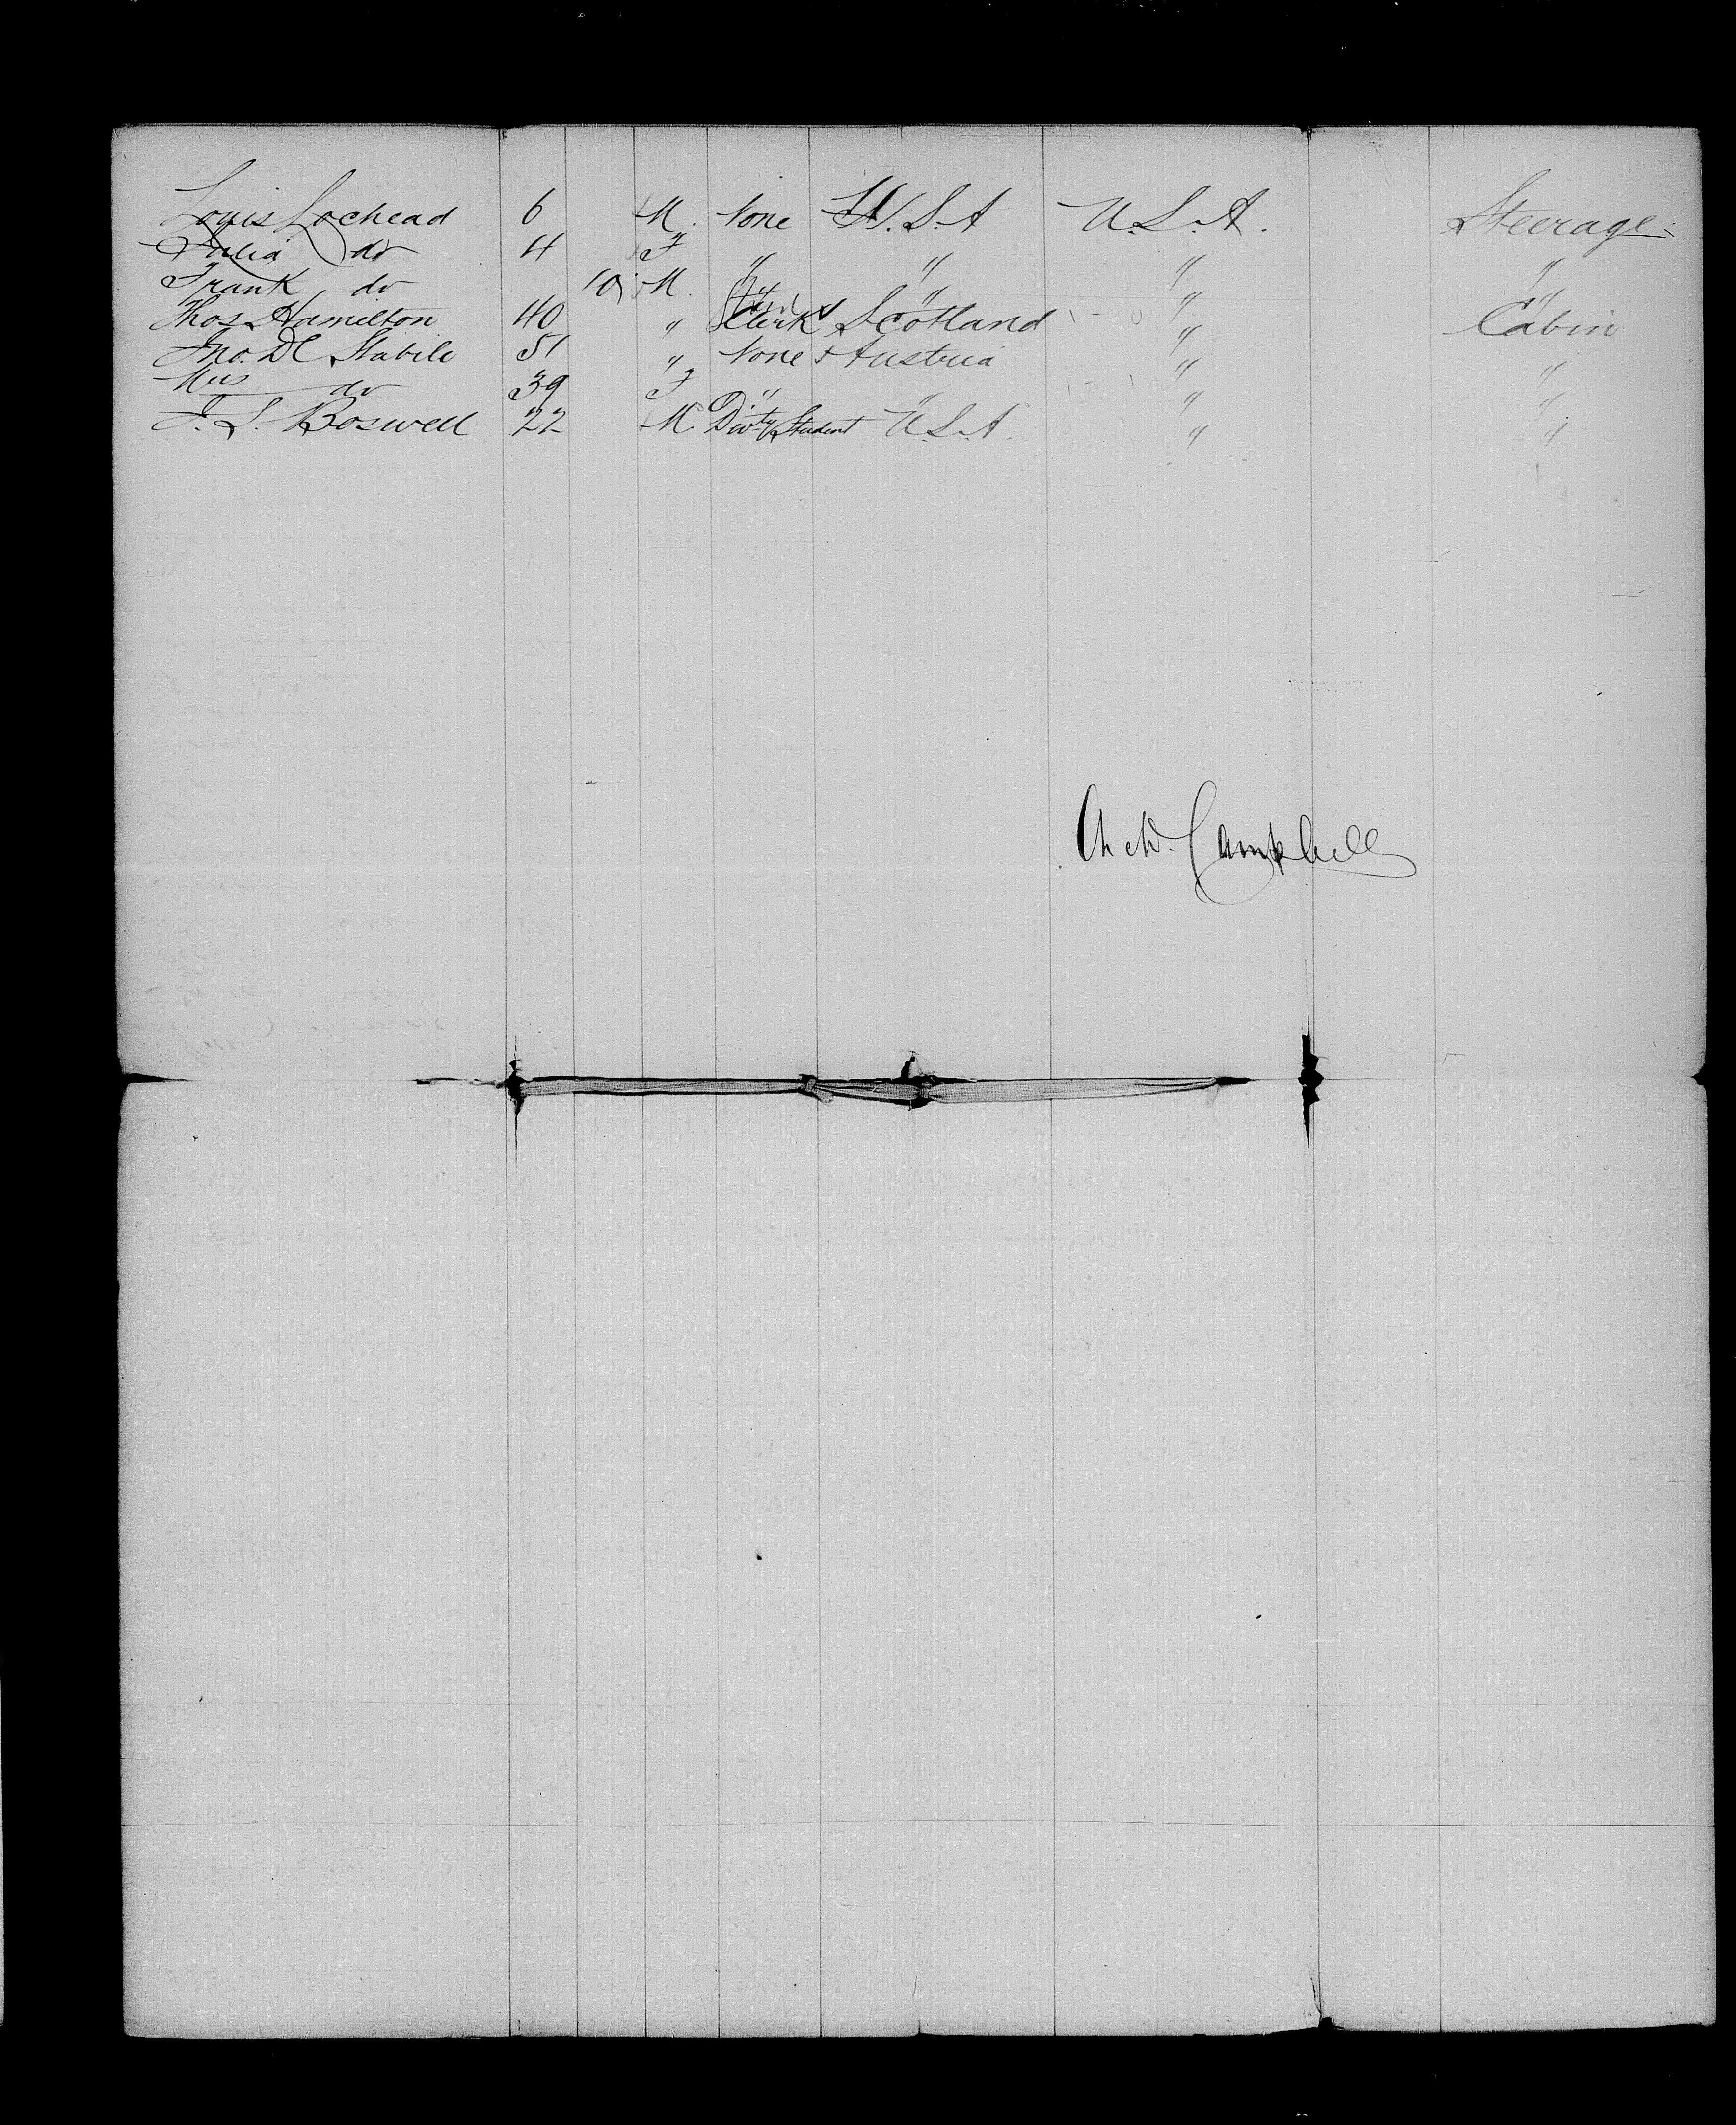 Louis Lochead 6 M. None U.S.A U.S.A. Steerage
Julia do 4 F " " " "
Frank do 10 M. " " " "
Thos Hamilton 40 " Clerk Scotland " Cabin
Jno. Di Stabile 51 " None Austria " "
Mrs do 39 F " " " "
J. S. Boswell 22 M. Divty Student U.S.A. " "
Archd. Campbell